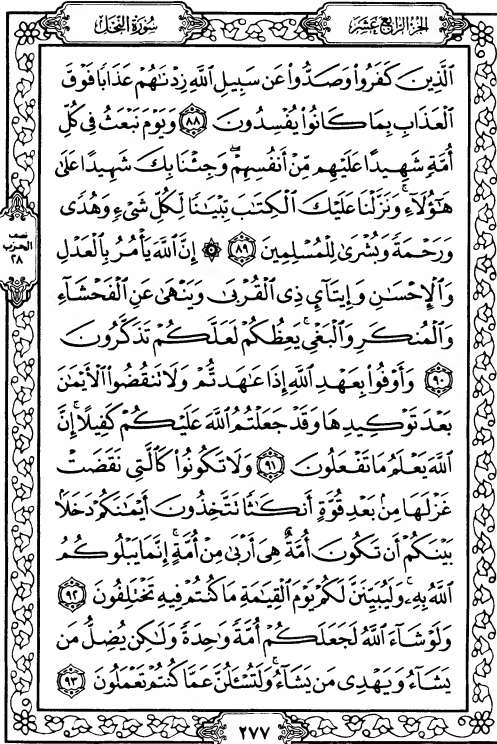 الجزء الرابع عشر
سورة النحل
الَّذِينَ كَفَرُوا۟ وَصَدُّوا۟ عَن سَبِيلِ اللَّهِ زِدْنَٰهُمْ عَذَابًا فَوْقَ
الْعَذَابِ بِمَا كَانُوا۟ يُفْسِدُونَ ﴿٨٨﴾ وَيَوْمَ نَبْعَثُ فِى كُلِّ
أُمَّةٍ شَهِيدًا عَلَيْهِم مِّنْ أَنفُسِهِمْ ۖ وَجِئْنَا بِكَ شَهِيدًا عَلَىٰ
هَٰٓؤُلَآءِ ۚ وَنَزَّلْنَا عَلَيْكَ الْكِتَٰبَ تِبْيَٰنًا لِّكُلِّ شَىْءٍ وَهُدًى
وَرَحْمَةً وَبُشْرَىٰ لِلْمُسْلِمِينَ ﴿٨٩﴾ ۞ إِنَّ اللَّهَ يَأْمُرُ بِالْعَدْلِ
وَالْإِحْسَٰنِ وَإِيتَآئِ ذِى الْقُرْبَىٰ وَيَنْهَىٰ عَنِ الْفَحْشَآءِ
وَالْمُنكَرِ وَالْبَغْىِ ۚ يَعِظُكُمْ لَعَلَّكُمْ تَذَكَّرُونَ
﴿٩٠﴾ وَأَوْفُوا۟ بِعَهْدِ اللَّهِ إِذَا عَٰهَدتُّمْ وَلَا تَنقُضُوا۟ الْأَيْمَٰنَ
بَعْدَ تَوْكِيدِهَا وَقَدْ جَعَلْتُمُ اللَّهَ عَلَيْكُمْ كَفِيلًا ۚ إِنَّ
اللَّهَ يَعْلَمُ مَا تَفْعَلُونَ ﴿٩١﴾ وَلَا تَكُونُوا۟ كَالَّتِى نَقَضَتْ
غَزْلَهَا مِنۢ بَعْدِ قُوَّةٍ أَنكَٰثًا تَتَّخِذُونَ أَيْمَٰنَكُمْ دَخَلًۢا
بَيْنَكُمْ أَن تَكُونَ أُمَّةٌ هِىَ أَرْبَىٰ مِنْ أُمَّةٍ ۚ إِنَّمَا يَبْلُوكُمُ
اللَّهُ بِهِۦ ۚ وَلَيُبَيِّنَنَّ لَكُمْ يَوْمَ الْقِيَٰمَةِ مَا كُنتُمْ فِيهِ تَخْتَلِفُونَ ﴿٩٢﴾
وَلَوْ شَآءَ اللَّهُ لَجَعَلَكُمْ أُمَّةً وَٰحِدَةً وَلَٰكِن يُضِلُّ مَن
يَشَآءُ وَيَهْدِى مَن يَشَآءُ ۚ وَلَتُسْـَٔلُنَّ عَمَّا كُنتُمْ تَعْمَلُونَ ﴿٩٣﴾
نصف
الحزب
٢٨
٢٧٧